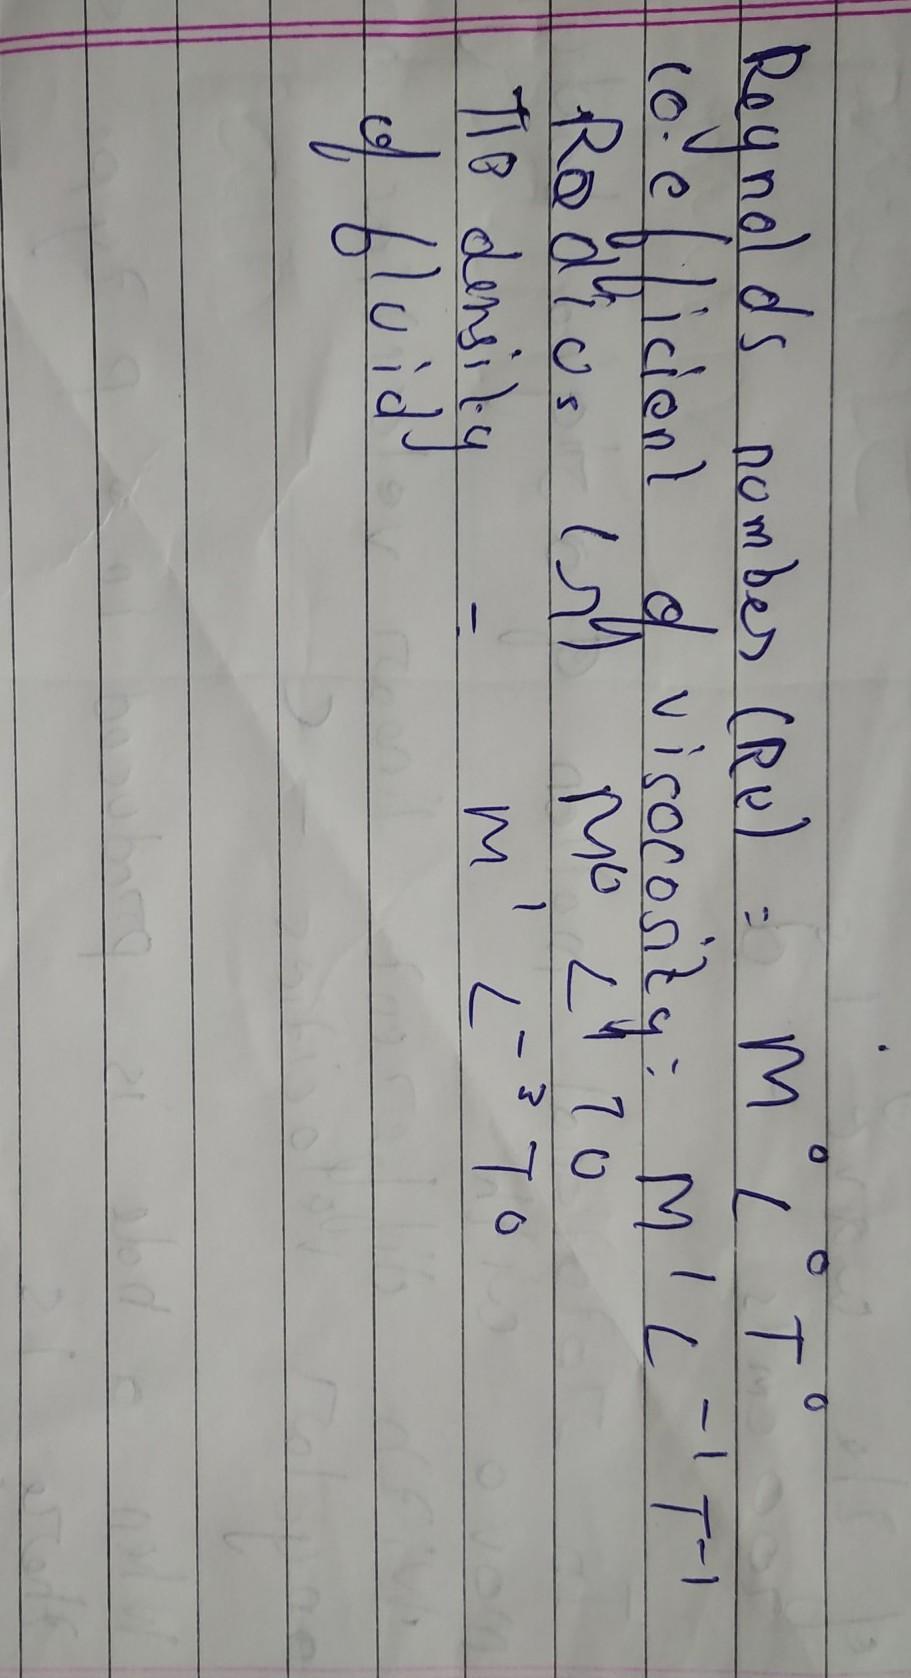 Reynolds number (Re) = M⁰ L⁰ T⁰
co.efficient of visocosity = M¹ L⁻¹ T⁻¹
Radius (r) M⁰ L¹ T⁰
The density - M¹ L⁻³ T⁰
of fluid